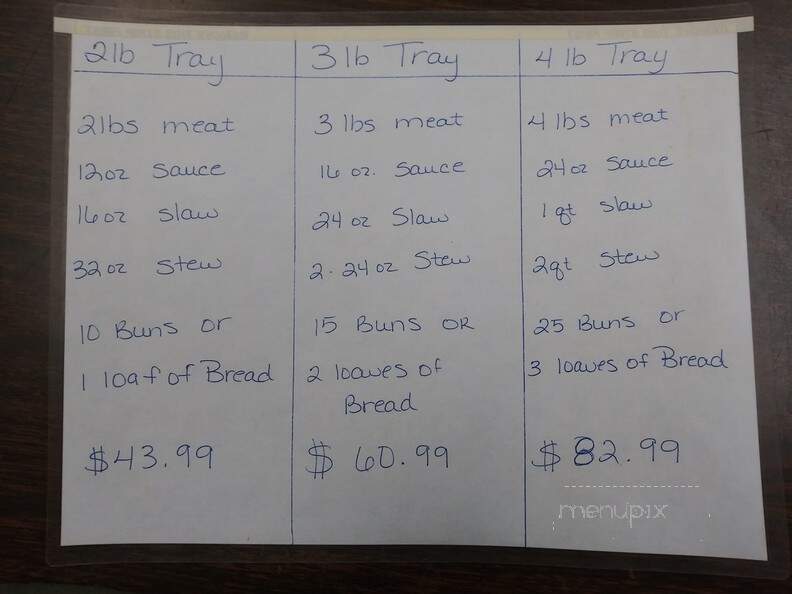 2lb Tray
2lbs meat
12oz Sauce
16oz Slaw
32oz Stew
10 Buns or
1 loaf of Bread
$43.99
3lb Tray
3 lbs meat
16 oz. Sauce
24 oz Slaw
2-24oz Stew
15 Buns OR
2 loaves of
Bread
$60.99
4 lb Tray
4 lbs meat
24oz Sauce
1 qt Slaw
2qt Stew
25 Buns or
3 loaves of Bread
$82.99
menupix